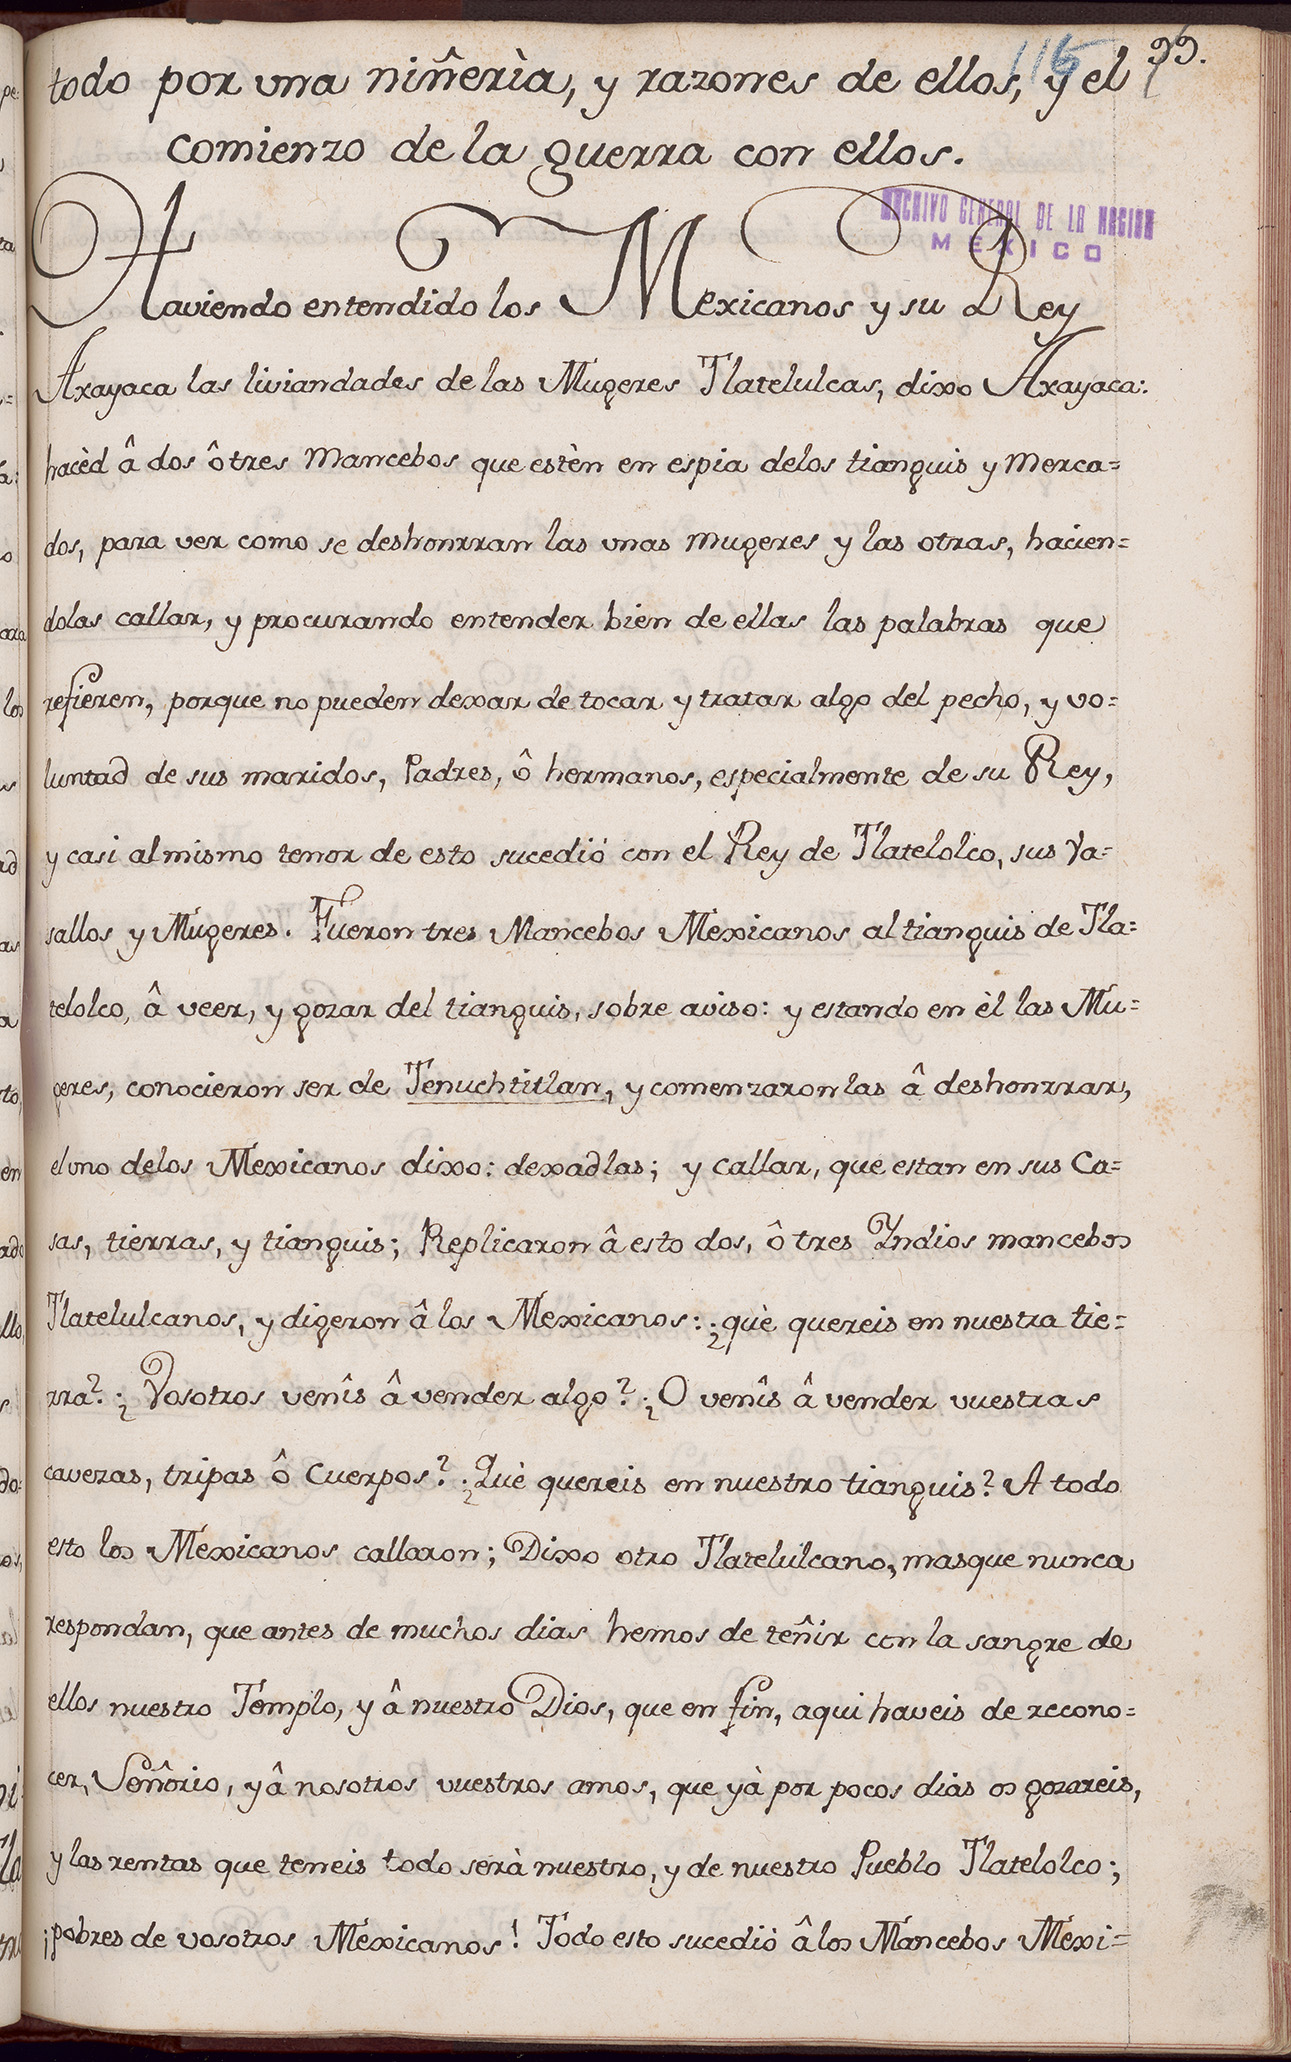 115 99.
todo por vna niñerìa, y razones de ellos, y el
comienzo de la guerra con ellos.
ARCHIVO GENERAL DE LA NACION
MEXICO
Haviendo entendido los Mexicanos y su Rey
Axayaca las liviandades de las Mugeres Tlatelulcas, dixo Axayaca:
hacèd â dos ô tres Mancebos que estèn en espia delos tianguis y Merca=
dos, para ver como se deshonrran las vnas Mugeres y las otras, hacien=
dolas callar, y procurando entender bien de ellas las palabras que
refieren, porque no pueden dexar de tocar y tratar algo del pecho, y vo=
luntad de sus maridos, Padres, ô hermanos, especialmente de su Rey,
y casi al mismo tenor de esto sucediò con el Rey de Tlatelolco, sus Va=
sallos y Mugeres. Fueron tres Mancebos Mexicanos al tianguis de Tla=
telolco, â veer, y gozar del tianguis, sobre aviso: y estando en èl las Mu=
geres, conocieron ser de Tenuchtitlan, y comenzaronlas â deshonrrar,
el vno delos Mexicanos dixo: dexadlas; y callar, que estan en sus Ca=
sas, tierras, y tianguis; Replicaron â esto dos, ô tres Yndios mancebos
Tlatelulcanos, y digeron â los Mexicanos: ¿què quereis en nuestra tie=
rra? ¿Vosotros venîs â vender algo? ¿O venîs â vender vuestras
cavezas, tripas ô Cuerpos? ¿Què quereis en nuestro tianguis? A todo
esto los Mexicanos callaron; Dixo otro Tlatelulcano, masque nunca
respondan, que antes de muchos dias hemos de teñir con la sangre de
ellos nuestro Templo, y â nuestro Dios, que en fin, aqui haveis de recono=
cer, Señorio, y â nosotros vuestros amos, que yà por pocos dias os gozareis,
y las rentas que teneis todo serà nuestro, y de nuestro Pueblo Tlatelolco;
¡pobres de vosotros Mexicanos! Todo esto sucediò â los Mancebos Mexi=